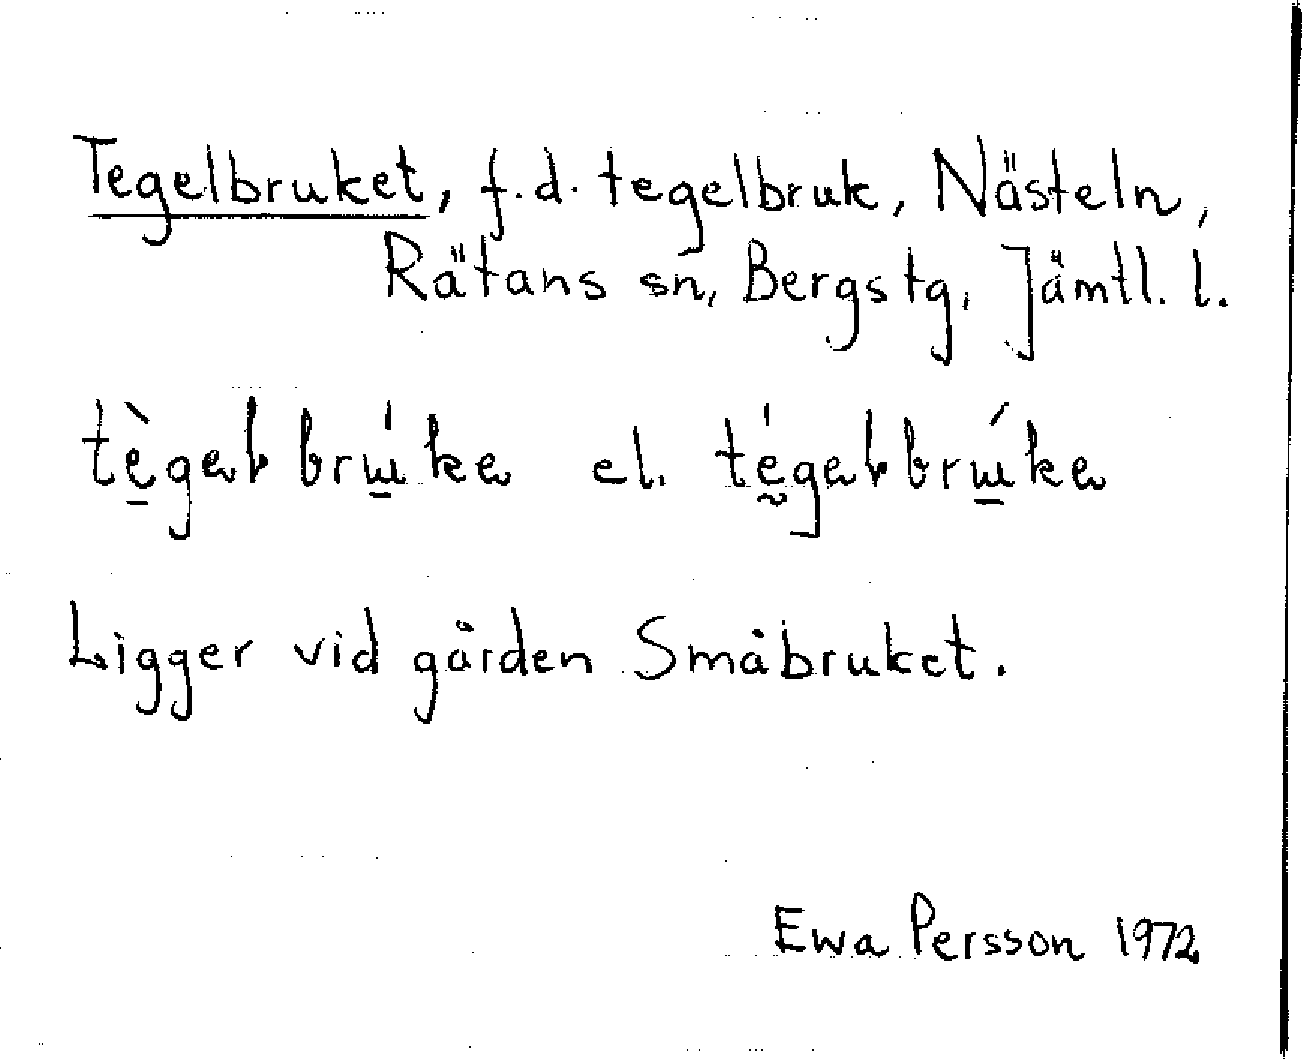 Tegelbruket, f.d. tegelbruk, Nästeln,
Rätans sn, Bergs tg, Jämtl. l.
el.
Ligger vid gården Småbruket.
Ewa Persson 1972